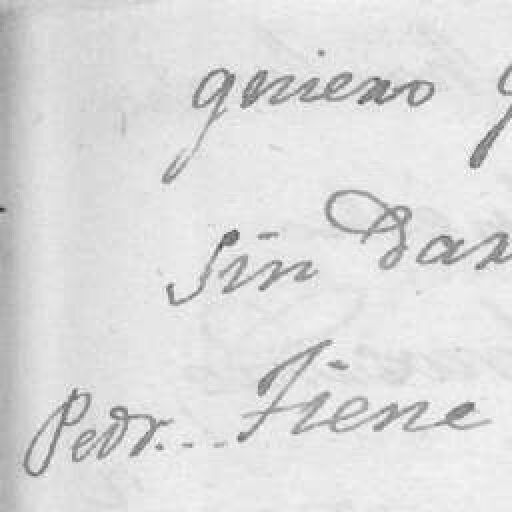 quiero
sin dar
Pedr... Tiene